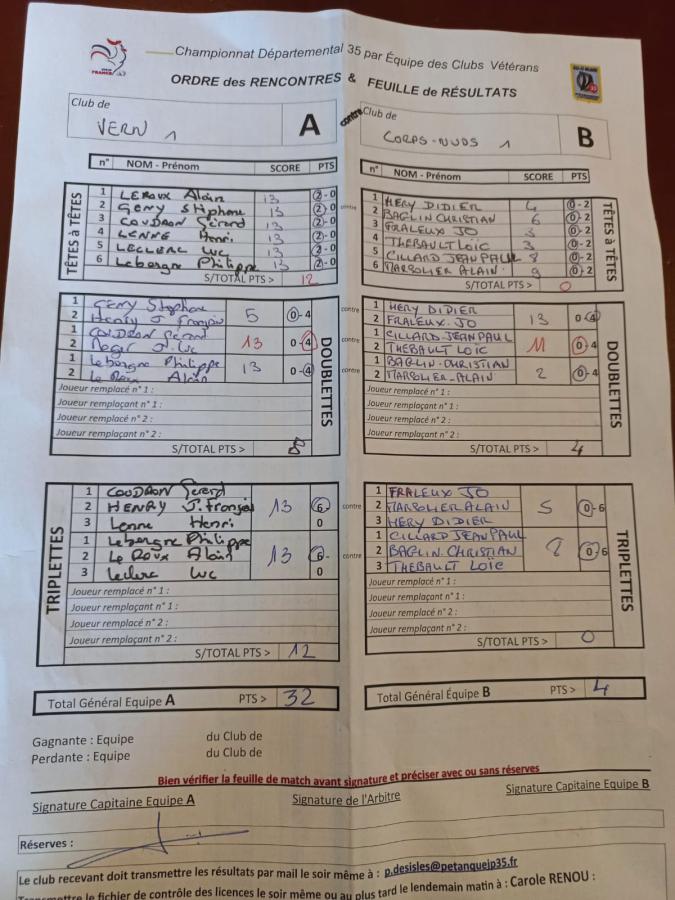 Championnat Départemental 35 par Équipe des Clubs Vétérans
ORDRE des RENCONTRES & FEUILLE de RÉSULTATS
Club de
VERN 1
A
contre
Club de
CORPS-NUDS 1
B
n° NOM - Prénom SCORE PTS
TÊTES à TÊTES
1 LEROUX Alain 13 2-0
2 GENY Stéphane 13 2-0
3 COUDRON Gérard 13 2-0
4 LENNE Henri 13 2-0
5 LECLERC Luc 13 2-0
6 Leborgne Philippe 13 2-0
S/TOTAL PTS > 12
contre
n° NOM - Prénom SCORE PTS
1 HERY DIDIER 4 0-2
2 BAGLIN CHRISTIAN 6 0-2
3 FRALEUX JO 3 0-2
4 THEBAULT LOÏC 3 0-2
5 CILLARD JEAN PAUL 8 0-2
6 MARSOLIER ALAIN 9 0-2
S/TOTAL PTS > 0
TÊTES à TÊTES
1 GENY Stéphane
2 Henry J François 5 0-4
1 COUDRON Gérard
2 Roger J Luc 13 0-4
1 Leborgne Philippe
2 Le Roux Alain 13 0-4
Joueur remplacé n° 1 :
Joueur remplaçant n° 1 :
Joueur remplacé n° 2 :
Joueur remplaçant n° 2 :
S/TOTAL PTS > 8
DOUBLETTES
contre
contre
contre
1 HERY DIDIER
2 FRALEUX JO 13 0-4
1 CILLARD JEAN PAUL
2 THEBAULT LOÏC 11 0-4
1 BAGLIN-CHRISTIAN
2 MARSOLIER-ALAIN 2 0-4
Joueur remplacé n° 1 :
Joueur remplaçant n° 1 :
Joueur remplacé n° 2 :
Joueur remplaçant n° 2 :
S/TOTAL PTS > 4
DOUBLETTES
TRIPLETTES
1 COUDRON Gerard
2 HENRY J. François 13 6-
3 Lenne Henri 0
1 Leborgne Philippe
2 Le Roux Alain 13 6-
3 Leclerc Luc 0
Joueur remplacé n° 1 :
Joueur remplaçant n° 1 :
Joueur remplacé n° 2 :
Joueur remplaçant n° 2 :
S/TOTAL PTS > 12
contre
contre
1 FRALEUX JO
2 MARSOLIER ALAIN 5 0-6
3 HERY DIDIER
1 CILLARD JEAN PAUL
2 BAGLIN. CHRISTIAN 8 0-6
3 THEBAULT LOÏC
Joueur remplacé n° 1 :
Joueur remplaçant n° 1 :
Joueur remplacé n° 2 :
Joueur remplaçant n° 2 :
S/TOTAL PTS > 0
TRIPLETTES
Total Général Equipe A PTS > 32
Total Général Équipe B PTS > 4
Gagnante : Equipe du Club de
Perdante : Equipe du Club de
Bien vérifier la feuille de match avant signature et préciser avec ou sans réserves
Signature Capitaine Equipe A Signature de l'Arbitre Signature Capitaine Equipe B
Réserves :
Le club recevant doit transmettre les résultats par mail le soir même à : p.desisles@petanquejp35.fr
Transmettre le fichier de contrôle des licences le soir même ou au plus tard le lendemain matin à : Carole RENOU :